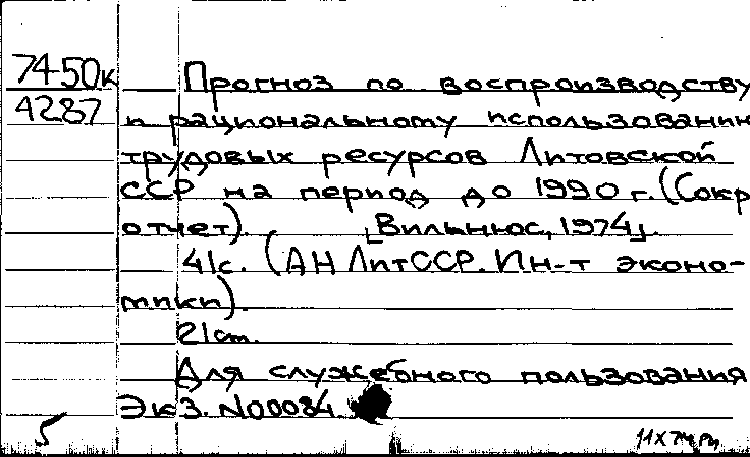 74-50к
4287
Прогноз по воспроизводству
и рациональному использованию
трудовых ресурсов Литовской
ССР на период до 1990 г. (Сокр
отчет). [Вильнюс, 1974].
41с. (АН ЛитССР. Ин-т эконо-
мики).
21см.
Для служебного пользования
Экз. N00084
5